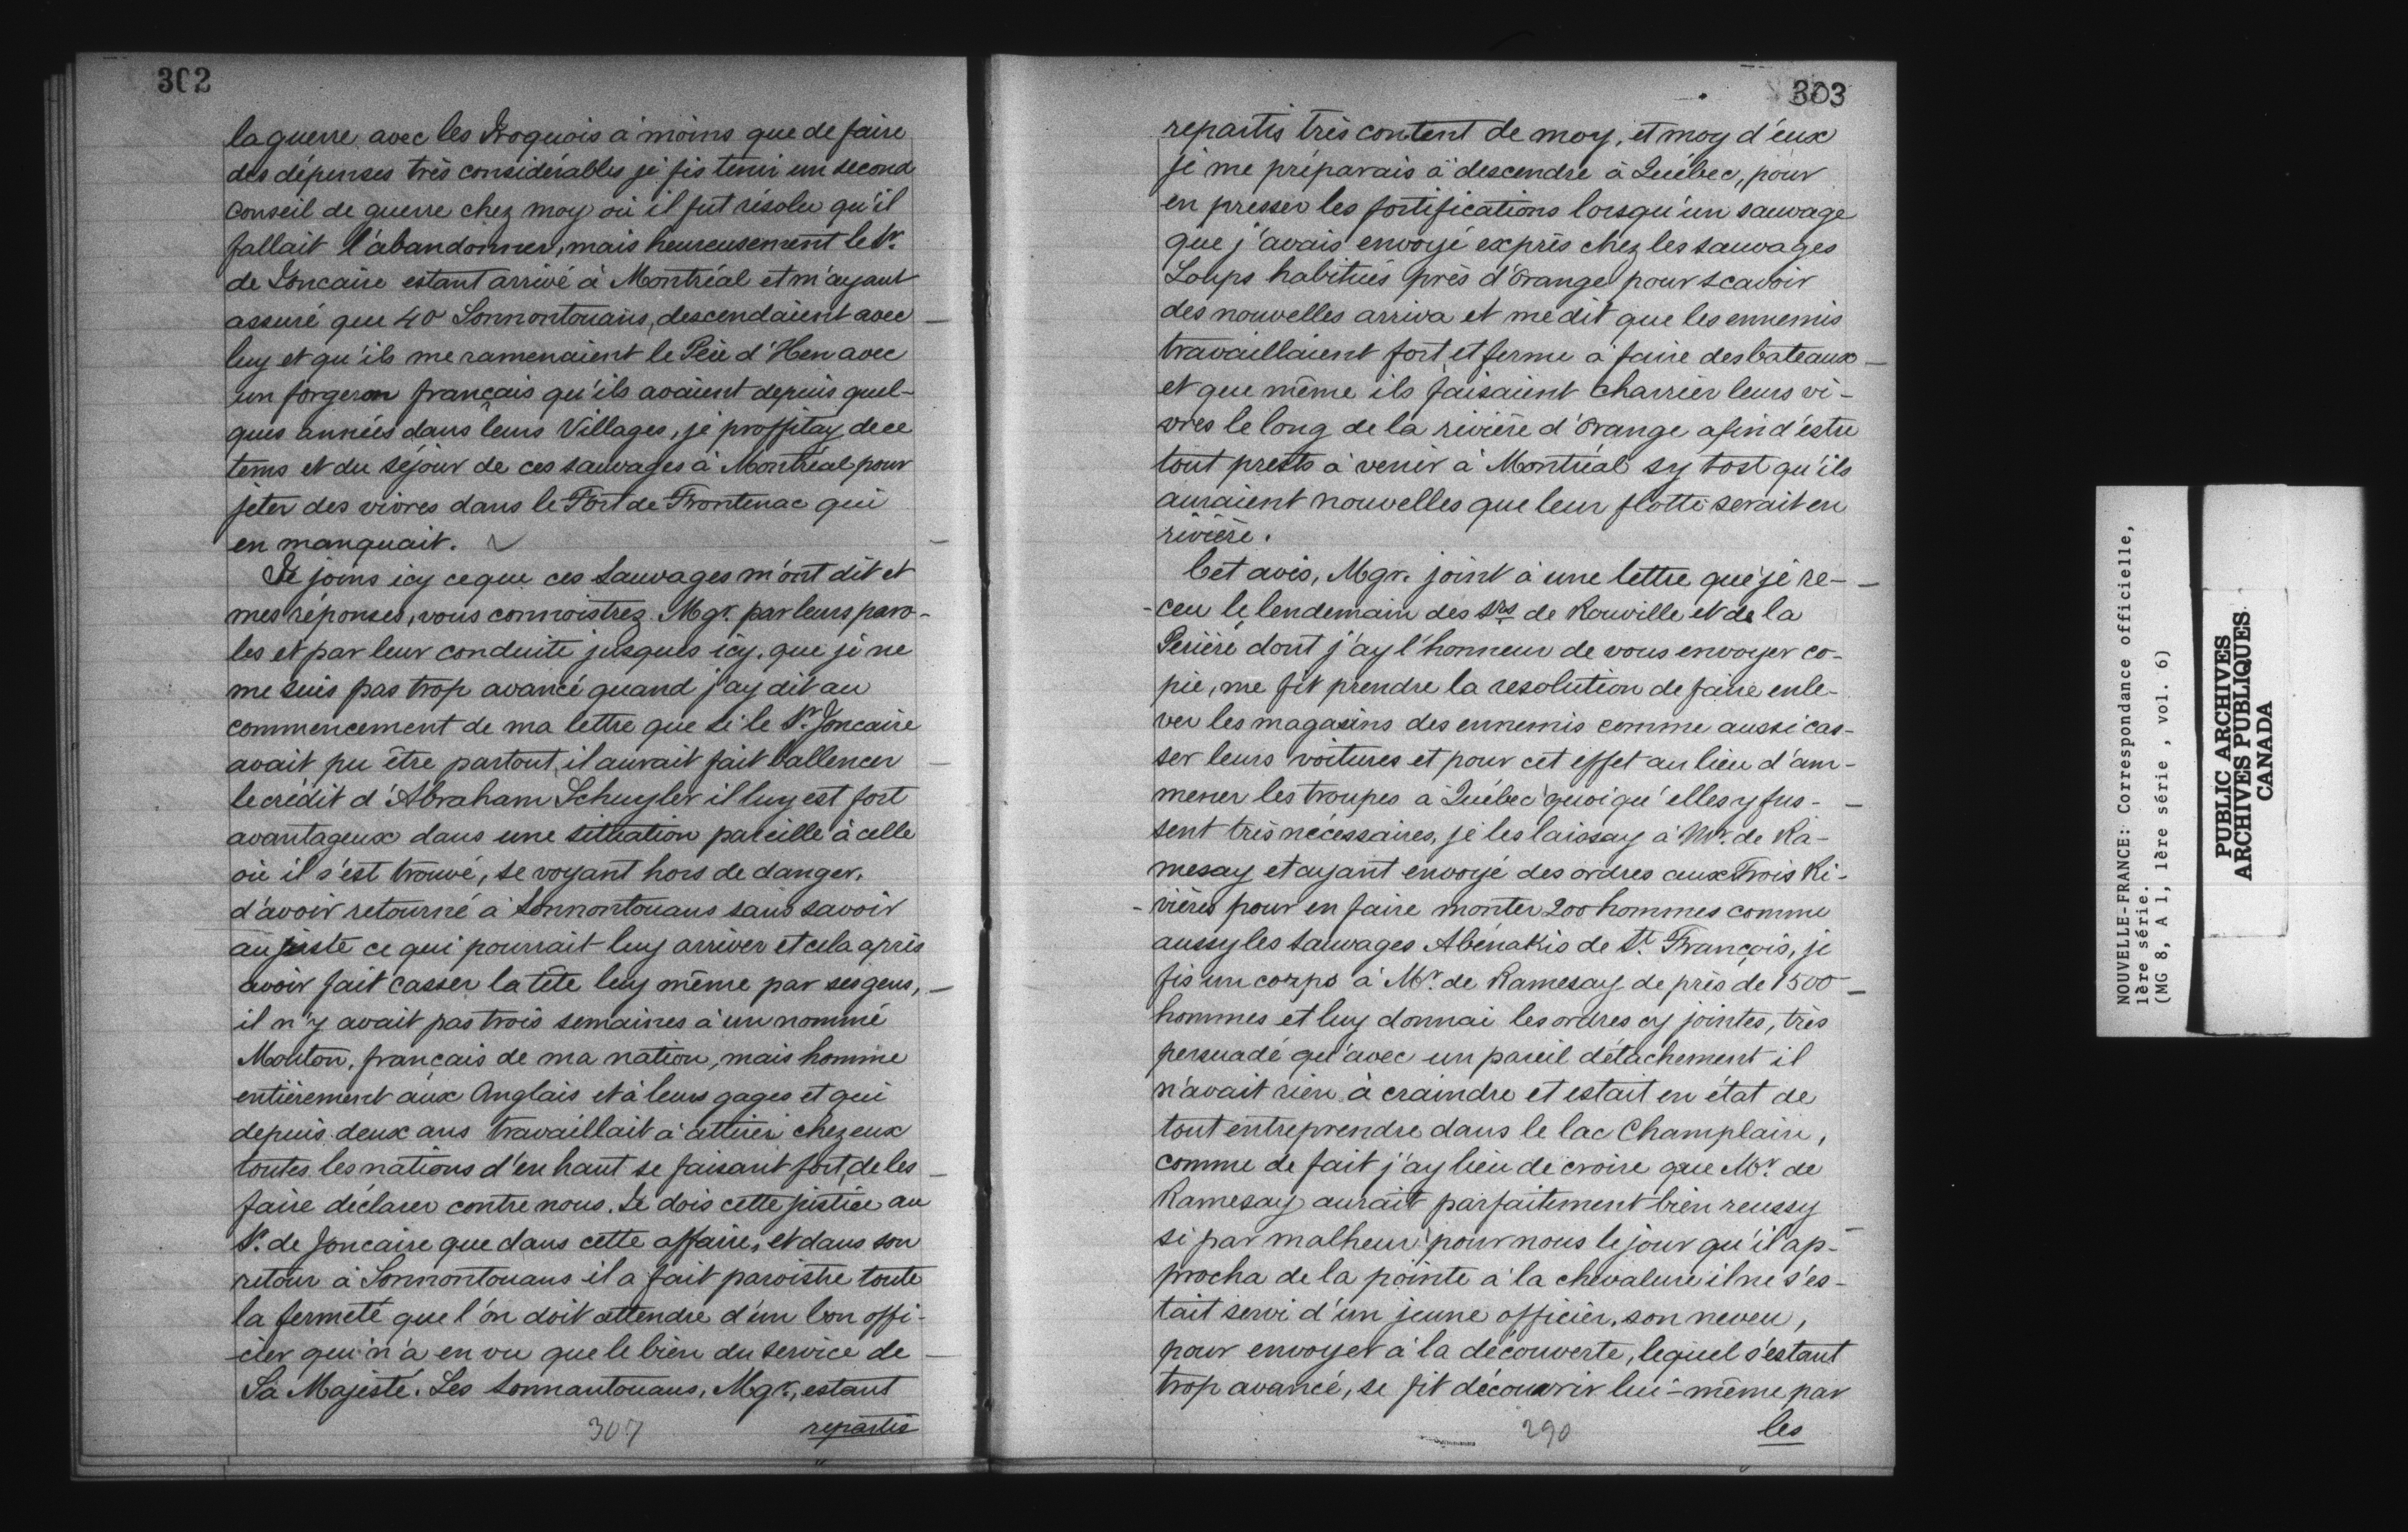 302
la guerre avec les Iroquois à moins que de faire
des dépenses très considérables je fis tenir un second
conseil de guerre chez moy où il fut résolu qu'il
fallait l'abandonner, mais heureusement le Sr.
de Joncaire estant arrivé à Montréal et m'ayant
assuré que 40 Sonnontouans, descendaient avec
luy et qu'ils me ramenaient le Père d'Heu avec
un forgeron français qu'ils avaient depuis quel-
ques années dans leurs Villages, je proffitay de ce
tems et du séjour de ces sauvages à Montréal pour
jeter des vivres dans le Fort de Frontenac qui
en manquait.
Je joins icy ce que ces Sauvages m'ont dit et
mes réponses, vous connoistrez Mgr. par leurs paro-
les et par leur conduite jusques icy. que je ne
me suis pas trop avancé quand j'ay dit au
commencement de ma lettre que si le Sr. Joncaire
avait pu être partout, il aurait fait ballencer
le crédit d'Abraham Schuyler il luy est fort
avantageux dans une situation pareille à celle
où il s'est trouvé, se voyant hors de danger,
d'avoir retourné à Sonnontouans sans savoir
au juste ce qui pourrait luy arriver et cela après
avoir fait casser la tête luy même par ses gens,
il n'y avait pas trois semaines à un nommé
Monton, français de ma nation, mais homme
entièrement aux Anglais et à leurs gages et qui
depuis deux ans travaillait à attirer chez eux
toutes les nations d'en haut se faisant fort de les
faire déclarer contre nous. Je dois cette justice au
Sr. de Joncaire que dans cette affaire, et dans son
retour à Sonnontouans il a fait paroistre toute
la fermeté que l'on doit attendre d'un bon offi-
cier qui n'a en vu que le bien du service de
Sa Majesté. Les Sonnantouans, Mgr., estant
307
repartis
303
repartis très content de moy, et moy d'eux
je me préparais à descendre à Québec, pour
en presser les fortifications lorsqu'un sauvage
que j'avais envoyé exprès chez les sauvages
Loups habitués près d'Orange pour scavoir
des nouvelles arriva et me dit que les ennemis
travaillaient fort et ferme à faire des bateaux
et que même ils faisaient charrier leurs vi-
vres le long de la rivière d'Orange afin d'estre
tout prests à venir à Montréal sy tost qu'ils
auraient nouvelles que leur flotte serait en
rivière.
Cet avis, Mgr. joint à une lettre que je re-
-ceu le lendemain des Srs de Rouville et de la
Perière dont j'ay l'honneur de vous envoyer co-
pie, me fit prendre la resolution de faire enle-
ver les magasins des ennemis comme aussi cas-
ser leurs voitures et pour cet effet au lieu d'am-
mener les troupes à Québec quoiqu'elles y fus-
sent très nécessaires, je les laissay à Mr. de Ra-
mesay et ayant envoyé des ordres aux Trois Ri-
-vières pour en faire monter 200 hommes comme
aussy les sauvages Abénakis de St. François, je
fis un corps à Mr. de Ramesay de près de 1500
hommes et luy donnai les ordres cy jointes, très
persuadé qu'avec un pareil détachement il
n'avait rien à craindre et estait en état de
tout entreprendre dans le lac Champlain,
comme de fait j'ay lieu de croire que Mr. de
Ramesay aurait parfaitement bien reussy
si par malheur pour nous le jour qu'il ap-
procha de la pointe à la chevalure il ne s'es-
tait servi d'un jeune officier, son neveu,
pour envoyer à la découverte, lequel s'estant
trop avancé, se fit découvrir lui-même par
290
les
NOUVELLE-FRANCE: Correspondance officielle,
1ère série.
(MG 8, A 1, 1ère série , vol. 6)
PUBLIC ARCHIVES
ARCHIVES PUBLIQUES
CANADA